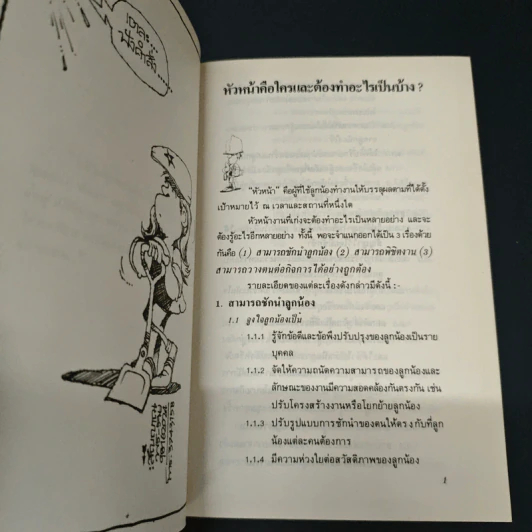 เอาละ...
ฟังคำสั่ง...
หัวหน้าคือใครและต้องทำอะไรเป็นบ้าง ?
"หัวหน้า" คือผู้ที่ใช้ลูกน้องทำงานให้บรรลุผลตามที่ได้ตั้ง
เป้าหมายไว้ ณ เวลาและสถานที่หนึ่งใด
หัวหน้างานที่เก่งจะต้องทำอะไรเป็นหลายอย่าง และจะ
ต้องรู้อะไรอีกหลายอย่าง ทั้งนี้ พอจะจำแนกออกได้เป็น 3 เรื่องด้วย
กันคือ (1) สามารถชักนำลูกน้อง (2) สามารถพิชิตงาน (3)
สามารถวางตนต่อกิจการได้อย่างถูกต้อง
รายละเอียดของแต่ละเรื่องดังกล่าวมีดังนี้ :-
1. สามารถชักนำลูกน้อง
1.1 จูงใจลูกน้องเป็น
1.1.1 รู้จักข้อดีและข้อพึงปรับปรุงของลูกน้องเป็นราย
บุคคล
1.1.2 จัดให้ความถนัดความสามารถของลูกน้องและ
ลักษณะของงานมีความสอดคล้องกันตรงกัน เช่น
ปรับโครงสร้างงานหรือโยกย้ายลูกน้อง
1.1.3 ปรับรูปแบบการชักนำของตนให้ตรงกับที่ลูก
น้องแต่ละคนต้องการ
1.1.4 มีความห่วงใยต่อสวัสดิภาพของลูกน้อง
1